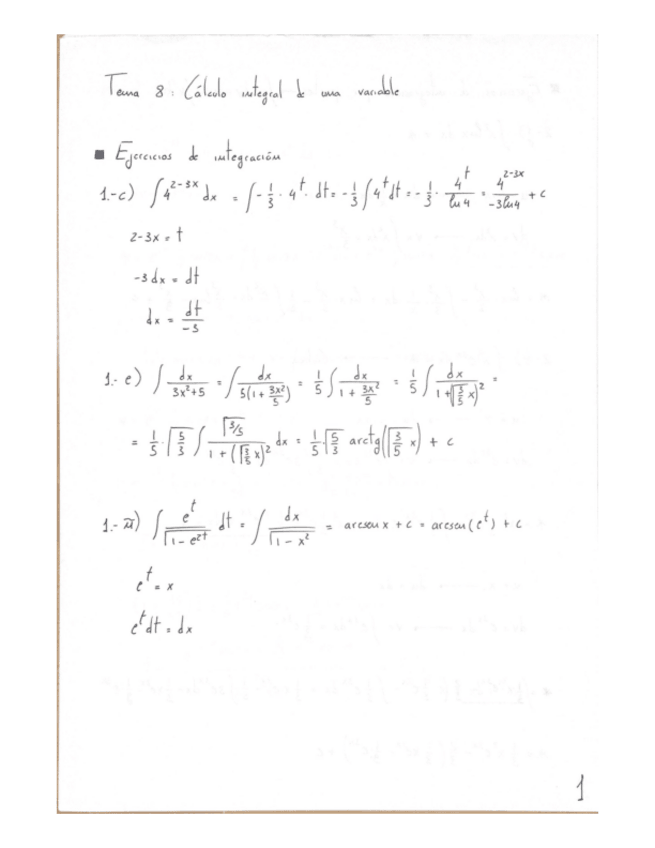 Tema 8: Cálculo integral de una variable
■ Ejercicios de integración
1.-c) ∫4^(2-3x) dx = ∫-1/3 · 4^t · dt = -1/3 ∫4^t dt = -1/3 · 4^t/ln4 = 4^(2-3x)/(-3ln4) + c
2-3x = t
-3dx = dt
dx = dt/-3
1.- e) ∫ dx/(3x²+5) = ∫ dx/(5(1+3x²/5)) = 1/5 ∫ dx/(1+3x²/5) = 1/5 ∫ dx/(1+(√(3/5) x)²) =
= 1/5 · √(5/3) ∫ √(3/5)/(1+(√(3/5) x)²) dx = 1/5 · √(5/3) arctg(√(3/5) x) + c
1.- ñ) ∫ e^t/√(1-e^(2t)) dt = ∫ dx/√(1-x²) = arcsen x + c = arcsen(e^t) + c
e^t = x
e^t dt = dx
1